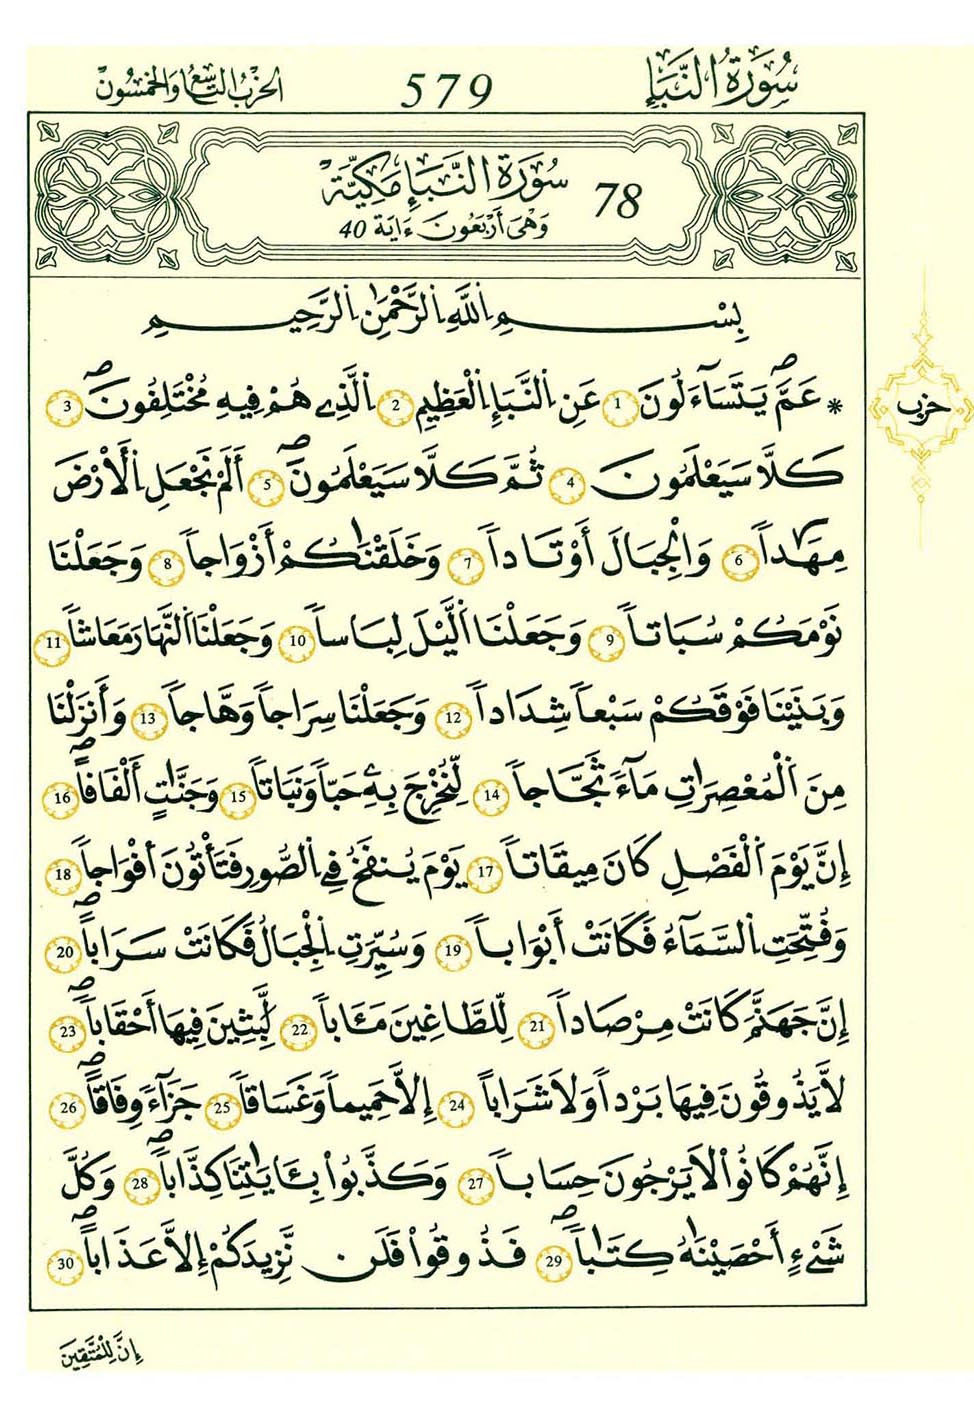 سُورَةُ النَّبَإِ
579
الحِزْبُ التَّاسِعُ وَالخَمْسُونَ
78
سُورَةُ النَّبَإِ مَكِّيَّة
وَهْىَ أَرْبَعُونَ ءَايَة 40
بِسْمِ اِللَّهِ اِلرَّحْمَٰنِ اِلرَّحِيمِ
* عَمَّ يَتَسَآءَلُونَۖ 1 عَنِ اِلنَّبَإِ اِلْعَظِيمِ 2 اِلَّذِے هُمْ فِيهِ مُخْتَلِفُونَۖ 3
حزب
كَلَّا سَيَعْلَمُونَ 4 ثُمَّ كَلَّا سَيَعْلَمُونَۖ 5 أَلَمْ نَجْعَلِ اِلْأَرْضَ
مِهَٰداً 6 وَالْجِبَالَ أَوْتَاداً 7 وَخَلَقْنَٰكُمْ أَزْوَاجاً 8 وَجَعَلْنَا
نَوْمَكُمْ سُبَاتاً 9 وَجَعَلْنَا اَلَّيْلَ لِبَاساً 10 وَجَعَلْنَا اَلنَّهَارَ مَعَاشاً 11
وَبَنَيْنَا فَوْقَكُمْ سَبْعاً شِدَاداً 12 وَجَعَلْنَا سِرَاجاً وَهَّاجاً 13 وَأَنزَلْنَا
مِنَ اَلْمُعْصِرَٰتِ مَآءً ثَجَّاجاً 14 لِّنُخْرِجَ بِهِۦ حَبّاً وَنَبَاتاً 15 وَجَنَّٰتٍ أَلْفَافاًۖ 16
إِنَّ يَوْمَ اَلْفَصْلِ كَانَ مِيقَاتاً 17 يَوْمَ يُنفَخُ فِے اِلصُّورِ فَتَأْتُونَ أَفْوَاجاً 18
وَفُتِّحَتِ اِلسَّمَآءُ فَكَانَتْ أَبْوَاباً 19 وَسُيِّرَتِ اِلْجِبَالُ فَكَانَتْ سَرَاباًۖ 20
إِنَّ جَهَنَّمَ كَانَتْ مِرْصَاداً 21 لِّلطَّاغِينَ مَـَٔاباً 22 لَّٰبِثِينَ فِيهَا أَحْقَاباًۖ 23
لَّا يَذُوقُونَ فِيهَا بَرْداً وَلَا شَرَاباً 24 إِلَّا حَمِيماً وَغَسَاقاً 25 جَزَآءً وِفَاقاًۖ 26
إِنَّهُمْ كَانُواْ لَا يَرْجُونَ حِسَاباً 27 وَكَذَّبُواْ بِـَٔايَٰتِنَا كِذَّاباًۖ 28 وَكُلَّ
شَےْءٍ أَحْصَيْنَٰهُ كِتَٰباًۖ 29 فَذُوقُواْ فَلَن نَّزِيدَكُمْ إِلَّا عَذَاباًۖ 30
إِنَّ لِلْمُتَّقِينَ